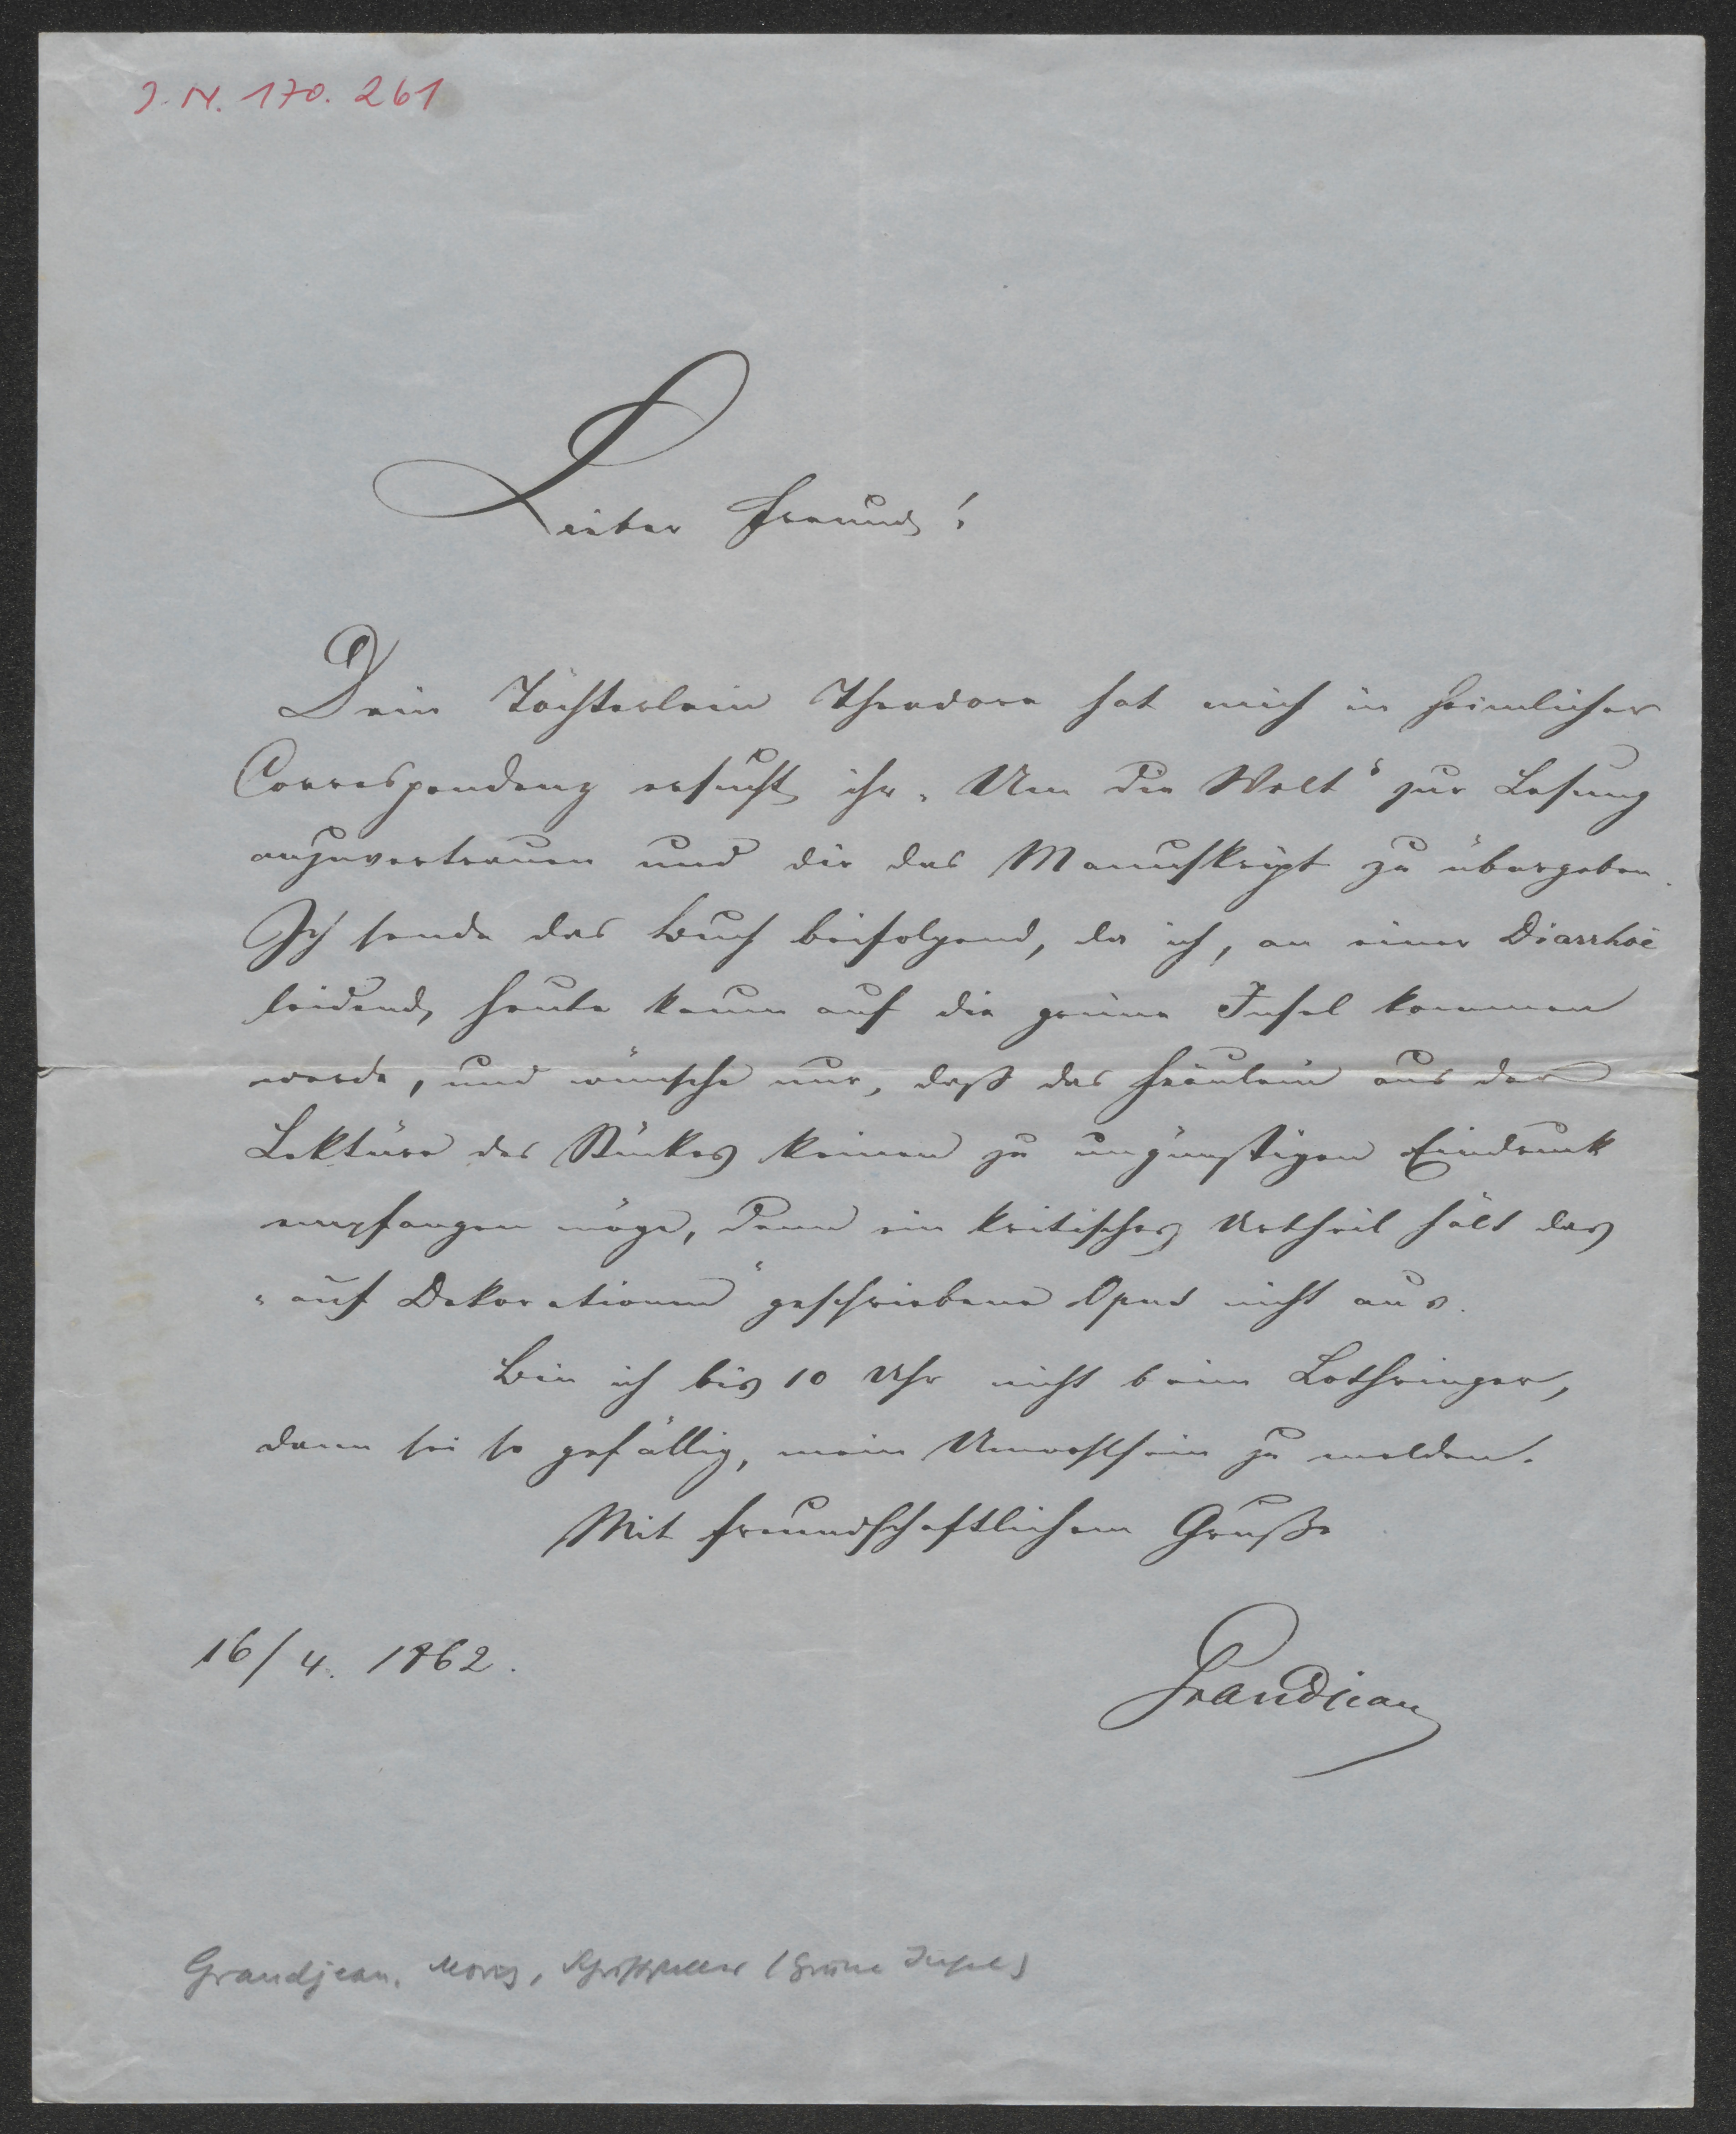 J. N. 170. 261
Lieber Freund!
Dein Töchterlein Theodora hat mich in heimlicher
Correspondenz ersucht, ihr „Um die Welt“ zur Lesung
anzuvertrauen und dir das Manuskript zu übergeben.
Ich sende das Buch beifolgend, da ich, an einer Diarrhöe
leidend, heute kaum auf die grüne Insel kommen
werde, und wünsche nur, daß das Fräulein aus der
Lektüre des Stückes keinen zu ungünstigen Eindruck
empfangen möge, denn ein kritisches Urtheil hält das
„auf Dekorationen“ geschriebene Opus nicht aus.
Bin ich bis 10 Uhr nicht beim Lothringer,
dann sei so gefällig, mein Unwohlsein zu melden.
Mit freundschaftlichem Gruße
16/4. 1862.
Grandjean
Grandjean, Moriz, Schriftsteller (Grüne Insel)